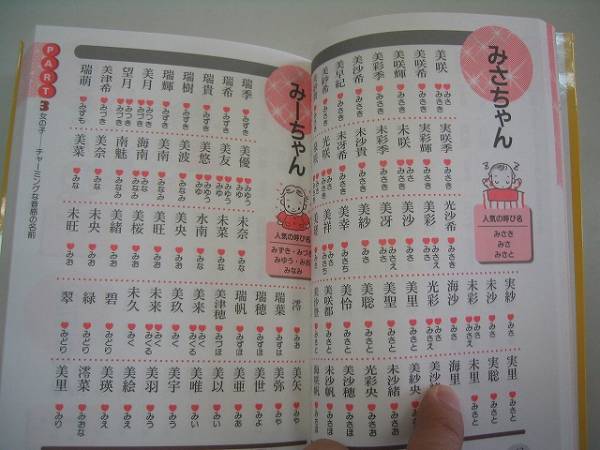 みさちゃん
人気の呼び名
みさき
みさ
みさと
美咲♥みさき
美咲希♥みさき
美咲輝♥みさき
美彩季♥みさき
美沙希♥みさき
美早紀♥みさき
美紗希♥みさき
実咲季♥みさき
実彩輝♥みさき
未咲♥みさき
未彩季♥みさき
未沙貴♥みさき
未冴希♥みさき
光咲♥みさき
光沙希♥みさき
美彩♥みさ♥みさえ
美沙♥みさ
美冴♥みさ♥みさえ
美紗♥みさ
美幸♥みさち
美祥♥みさち
実紗♥みさ
未沙♥みさ
未彩♥みさ♥みさえ
海沙♥みさ
光彩♥みさ♥みさえ
美里♥みさと
美聖♥みさと
美聡♥みさと
美怜♥みさと
美咲都♥みさと
実里♥みさと
実聡♥みさと
未里♥みさと
海里♥みさと
美沙
美紗央♥みさお
未沙緒♥みさお
光彩央♥みさお
美沙穂♥みさほ
未沙帆♥みさほ
海咲帆♥みさほ
みーちゃん
人気の呼び名
みずき・みづ
みゆう・みお
みなみ
瑞季♥みずき
瑞希♥みずき
瑞貴♥みずき
瑞樹♥みずき
瑞輝♥みずき
美月♥みつき♥みづき
望月♥みつき♥みづき
美津希♥みづき
瑞萌♥みずも
美優♥みゆ♥みゆう
美友♥みゆ♥みゆう
美悠♥みゆ♥みゆう
美波♥みなみ
美南♥みなみ
海南♥みなみ
南魅♥みなみ
美奈♥みな
美菜♥みな
未奈♥みな
未菜♥みな
水南♥みな
美央♥みお
美旺♥みお
美桜♥みお
美緒♥みお
未央♥みお
未旺♥みお
澪♥みお
瑞葉♥みずは
瑞穂♥みずほ
瑞帆♥みずほ
美津穂♥みづほ
美来♥みく♥みくる
美玖♥みく
未来♥みく♥みくる
未久♥みく
碧♥みどり
緑♥みどり
翠♥みどり
美矢♥みや
美弥♥みや
美世♥みよ
美亜♥みあ
美以♥みい
美唯♥みい
美宇♥みう
美羽♥みう
美絵♥みえ
美瑛♥みえ
澪菜♥みおな
美里♥みり
PART3 女の子 チャーミングな音感の名前